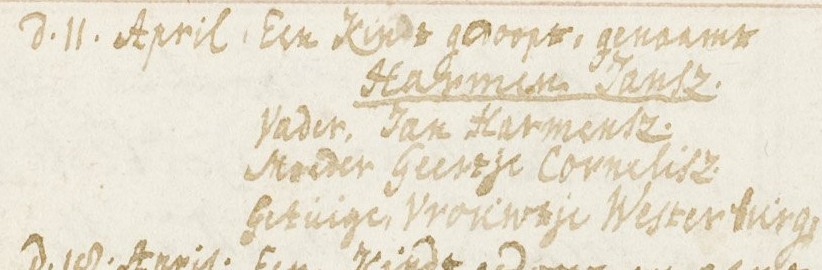 D. 11. April. Een Kindt gedoopt, genaamt
Harmen Jansz.
Vader, Jan Harmensz.
Moeder Geertje Cornelisz.
Getuige, Vrouwtje Westerburg.
D. 18. April. Een Kindt